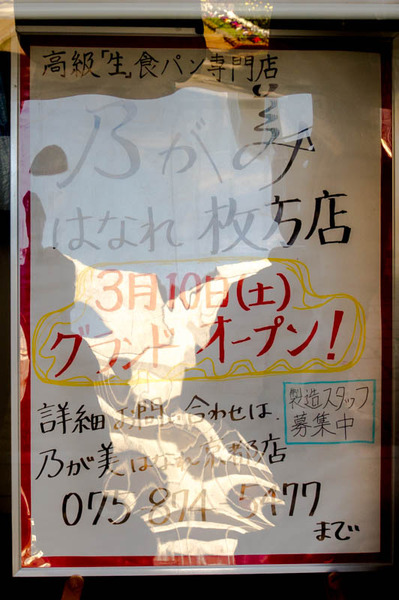 高級「生」食パン専門店
乃が美
はなれ 枚方店
3月10日(土)
グランドオープン!
製造スタッフ
募集中
詳細 お問い合わせは、
乃が美はなれ京都店
075-874-5477
まで